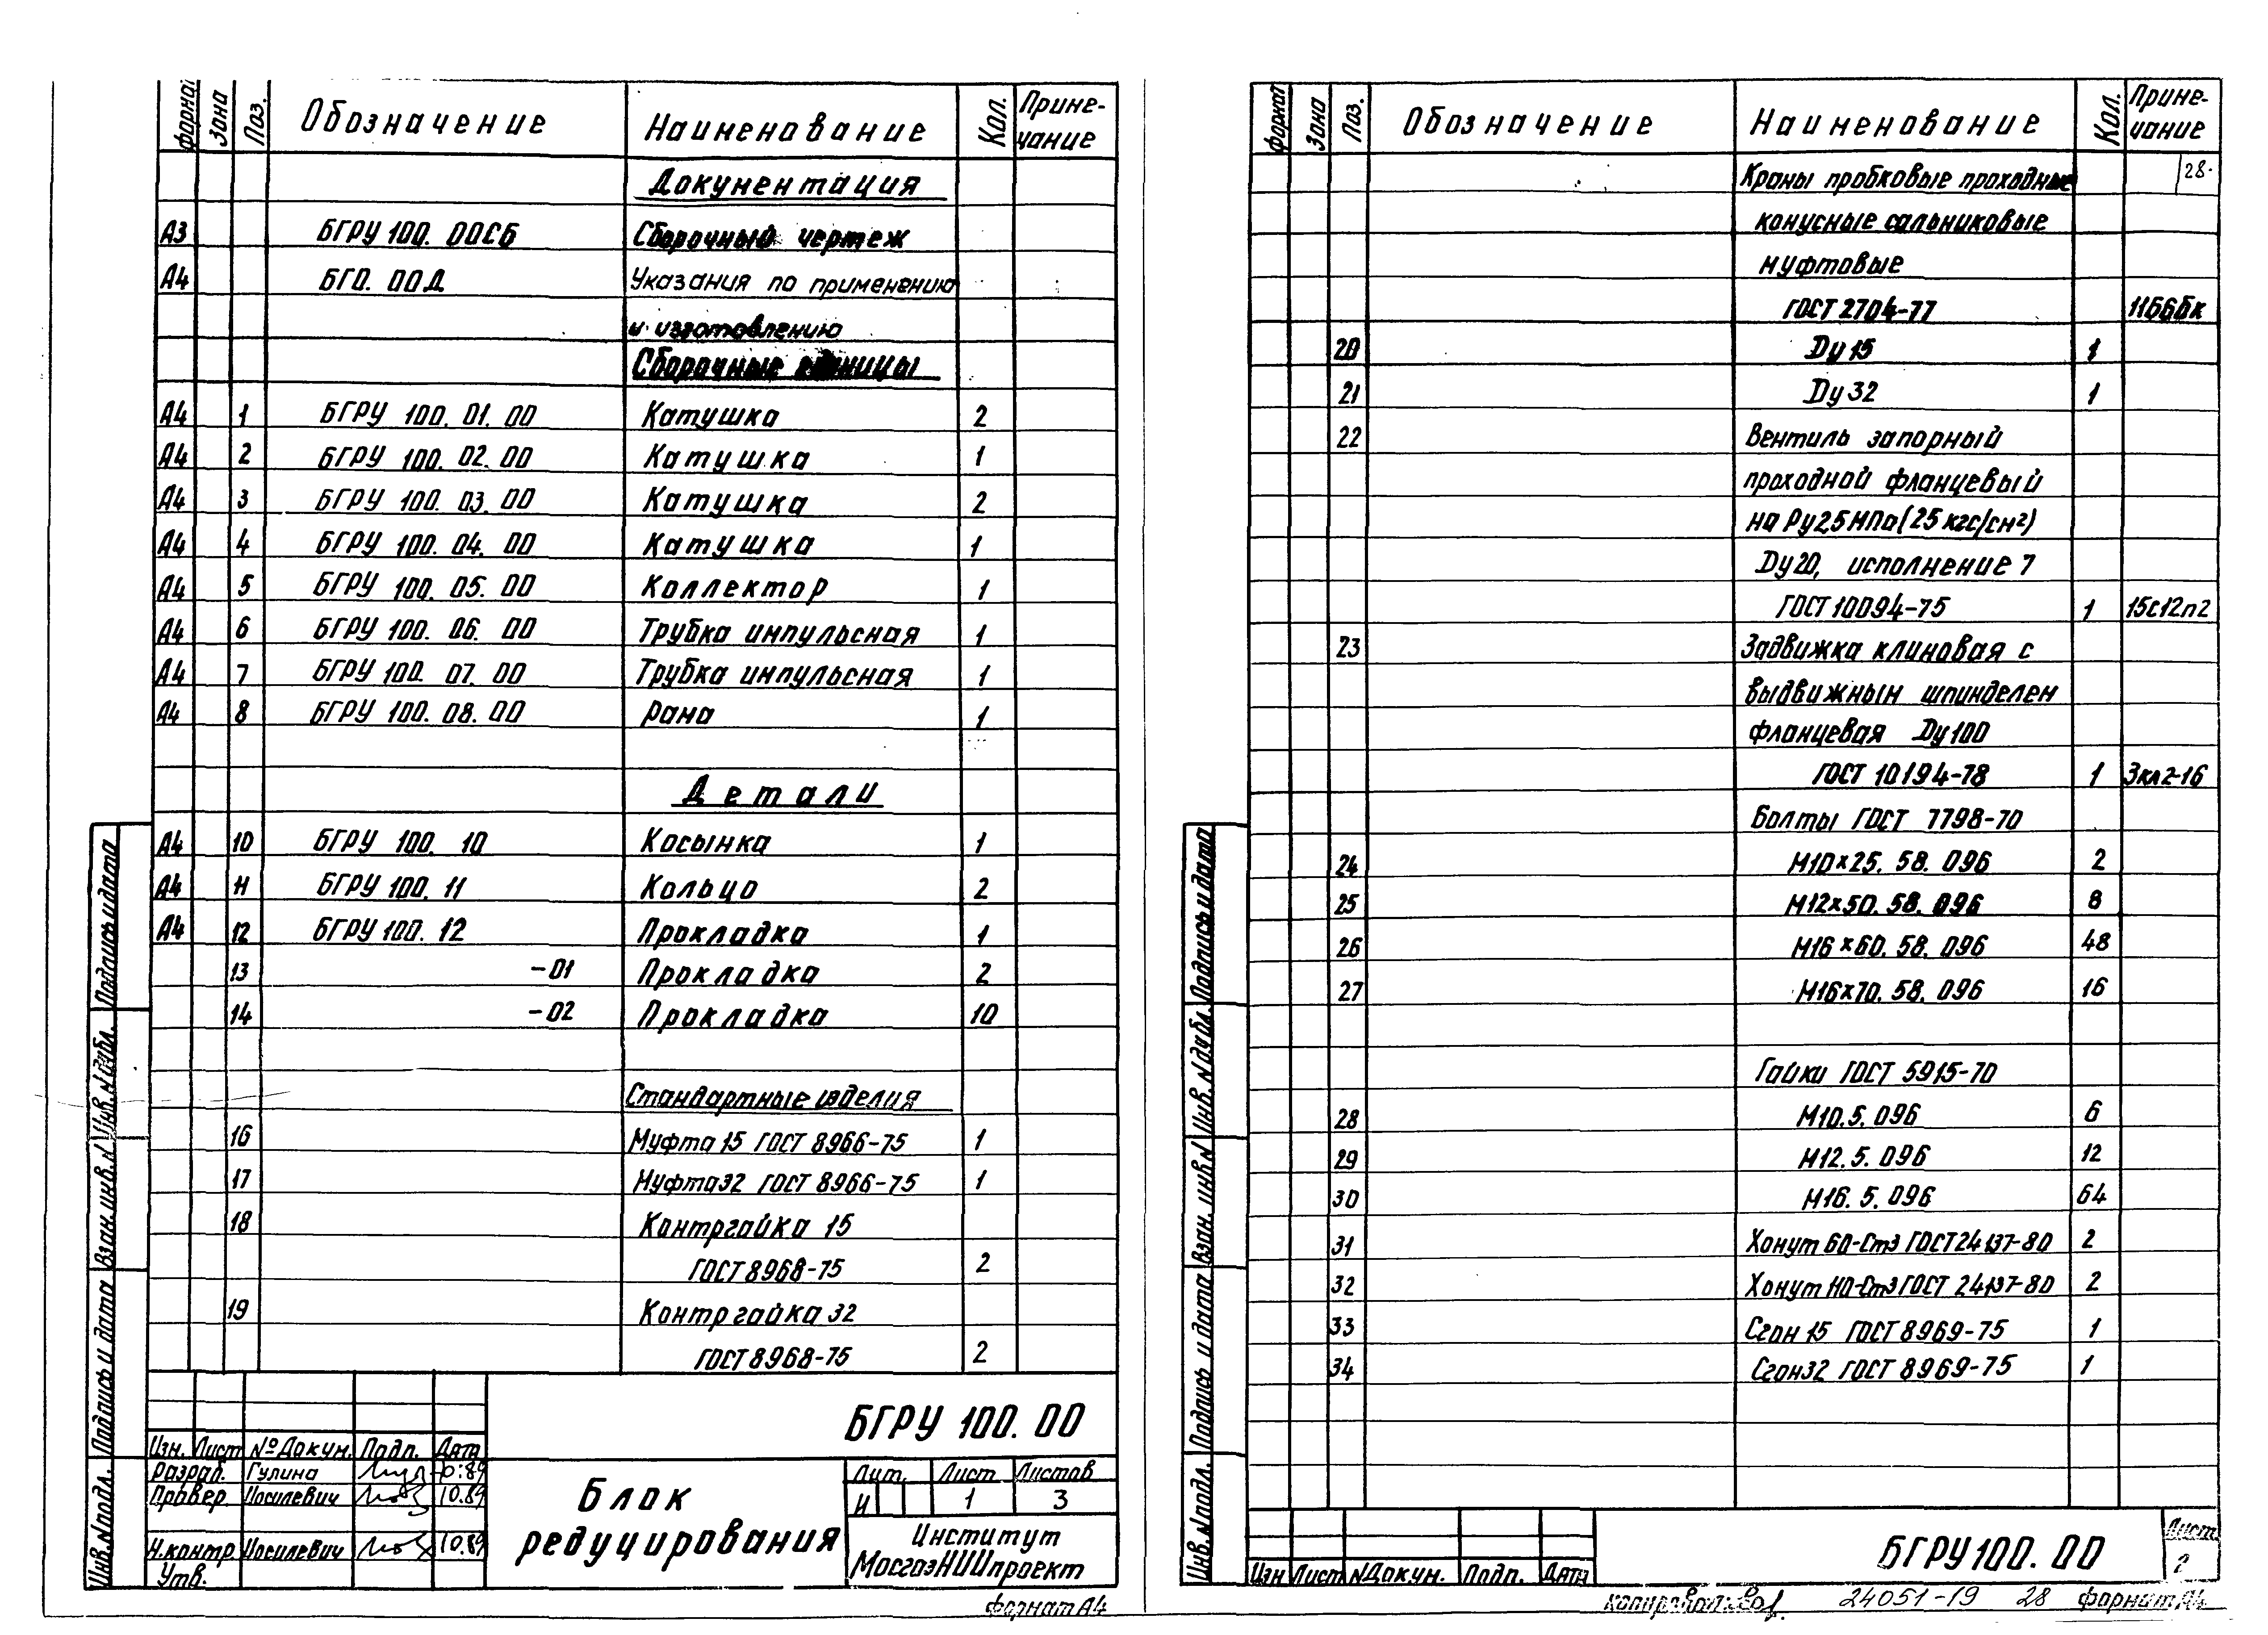 Формат Зона Поз. Обозначение Наименование Кол. Приме-
чание
Документация
А3 БГРУ 100. 00СБ Сборочный чертеж
А4 БГО. 00Д Указания по применению
и изготовлению
Сборочные единицы
А4 1 БГРУ 100. 01. 00 Катушка 2
А4 2 БГРУ 100. 02. 00 Катушка 1
А4 3 БГРУ 100. 03. 00 Катушка 2
А4 4 БГРУ 100. 04. 00 Катушка 1
А4 5 БГРУ 100. 05. 00 Коллектор 1
А4 6 БГРУ 100. 06. 00 Трубка импульсная 1
А4 7 БГРУ 100. 07. 00 Трубка импульсная 1
А4 8 БГРУ 100. 08. 00 Рама 1
Детали
А4 10 БГРУ 100. 10 Косынка 1
А4 11 БГРУ 100. 11 Кольцо 2
А4 12 БГРУ 100. 12 Прокладка 1
13 -01 Прокладка 2
14 -02 Прокладка 10
Стандартные изделия
16 Муфта 15 ГОСТ 8966-75 1
17 Муфта 32 ГОСТ 8966-75 1
18 Контргайка 15
ГОСТ 8968-75 2
19 Контргайка 32
ГОСТ 8968-75 2
Подпись и дата
Инв. N дубл.
Взам. инв. N
Подпись и дата
Инв. N подл.
БГРУ 100. 00
Изм. Лист № Докум. Подп. Дата
Разраб. Гулина 10.89
Провер. Иосилевич 10.89
Н.контр. Иосилевич 10.89
Утв.
Блок
редуцирования
Лит. Лист Листов
И 1 3
Институт
МосгазНИИпроект
Формат А4
Формат Зона Поз. Обозначение Наименование Кол. Приме-
чание
28
Краны пробковые проходные
конусные сальниковые
муфтовые
ГОСТ 2704-77 11Б6бк
20 Dу 15 1
21 Dу 32 1
22 Вентиль запорный
проходной фланцевый
на Ру 25 МПа (25 кгс/см²)
Dу 20, исполнение 7
ГОСТ 10094-75 1 15с12п2
23 Задвижка клиновая с
выдвижным шпинделем
фланцевая Dу 100
ГОСТ 10194-78 1 Зкл2-16
Болты ГОСТ 7798-70
24 М10×25. 58. 096 2
25 М12×50. 58. 096 8
26 М16×60. 58. 096 48
27 М16×70. 58. 096 16
Гайки ГОСТ 5915-70
28 М10. 5. 096 6
29 М12. 5. 096 12
30 М16. 5. 096 64
31 Хомут 60-Ст3 ГОСТ 24137-80 2
32 Хомут 110-Ст3 ГОСТ 24137-80 2
33 Сгон 15 ГОСТ 8969-75 1
34 Сгон 32 ГОСТ 8969-75 1
Подпись и дата
Инв. N дубл.
Взам. инв. N
Подпись и дата
Инв. N подл.
Изм Лист N Докум. Подп. Дата
БГРУ 100. 00
Лист
2
Копировал: 24051-19 28 Формат А4